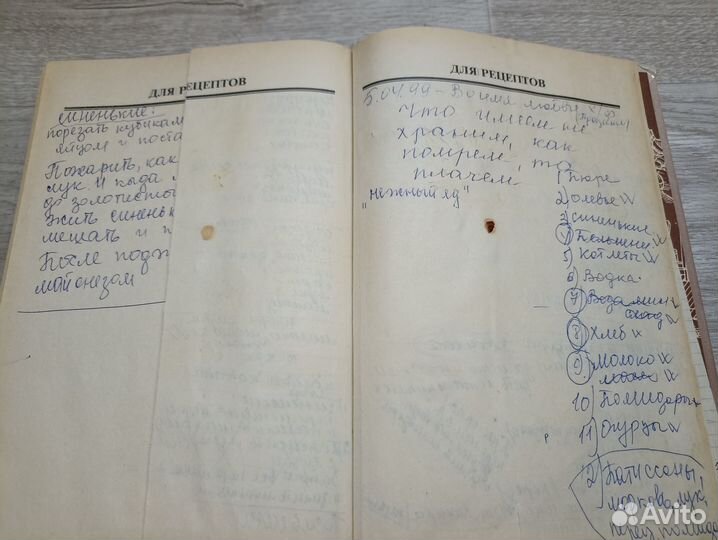 ДЛЯ РЕЦЕПТОВ
синенькие:
порезать кубикам
яйцом и поста
Пожарить, как
лук и кида
до золотисто
жить синень
мешать и п
После подж
майонезом
ДЛЯ РЕЦЕПТОВ
5.04.99 - Во имя любви
Что имеем не
храним, как
помрем, то
плачем
"нежный яд"
1) Пюре
2) Оливье
3) синенькие
4) Пельмени
5) Котлеты
6) Водка
7) Вода мин
8) Хлеб
9) Молоко
10) Помидоры
11) Огурцы
12) Патиссоны,
морковь, лук,
перец, помидо
Avito